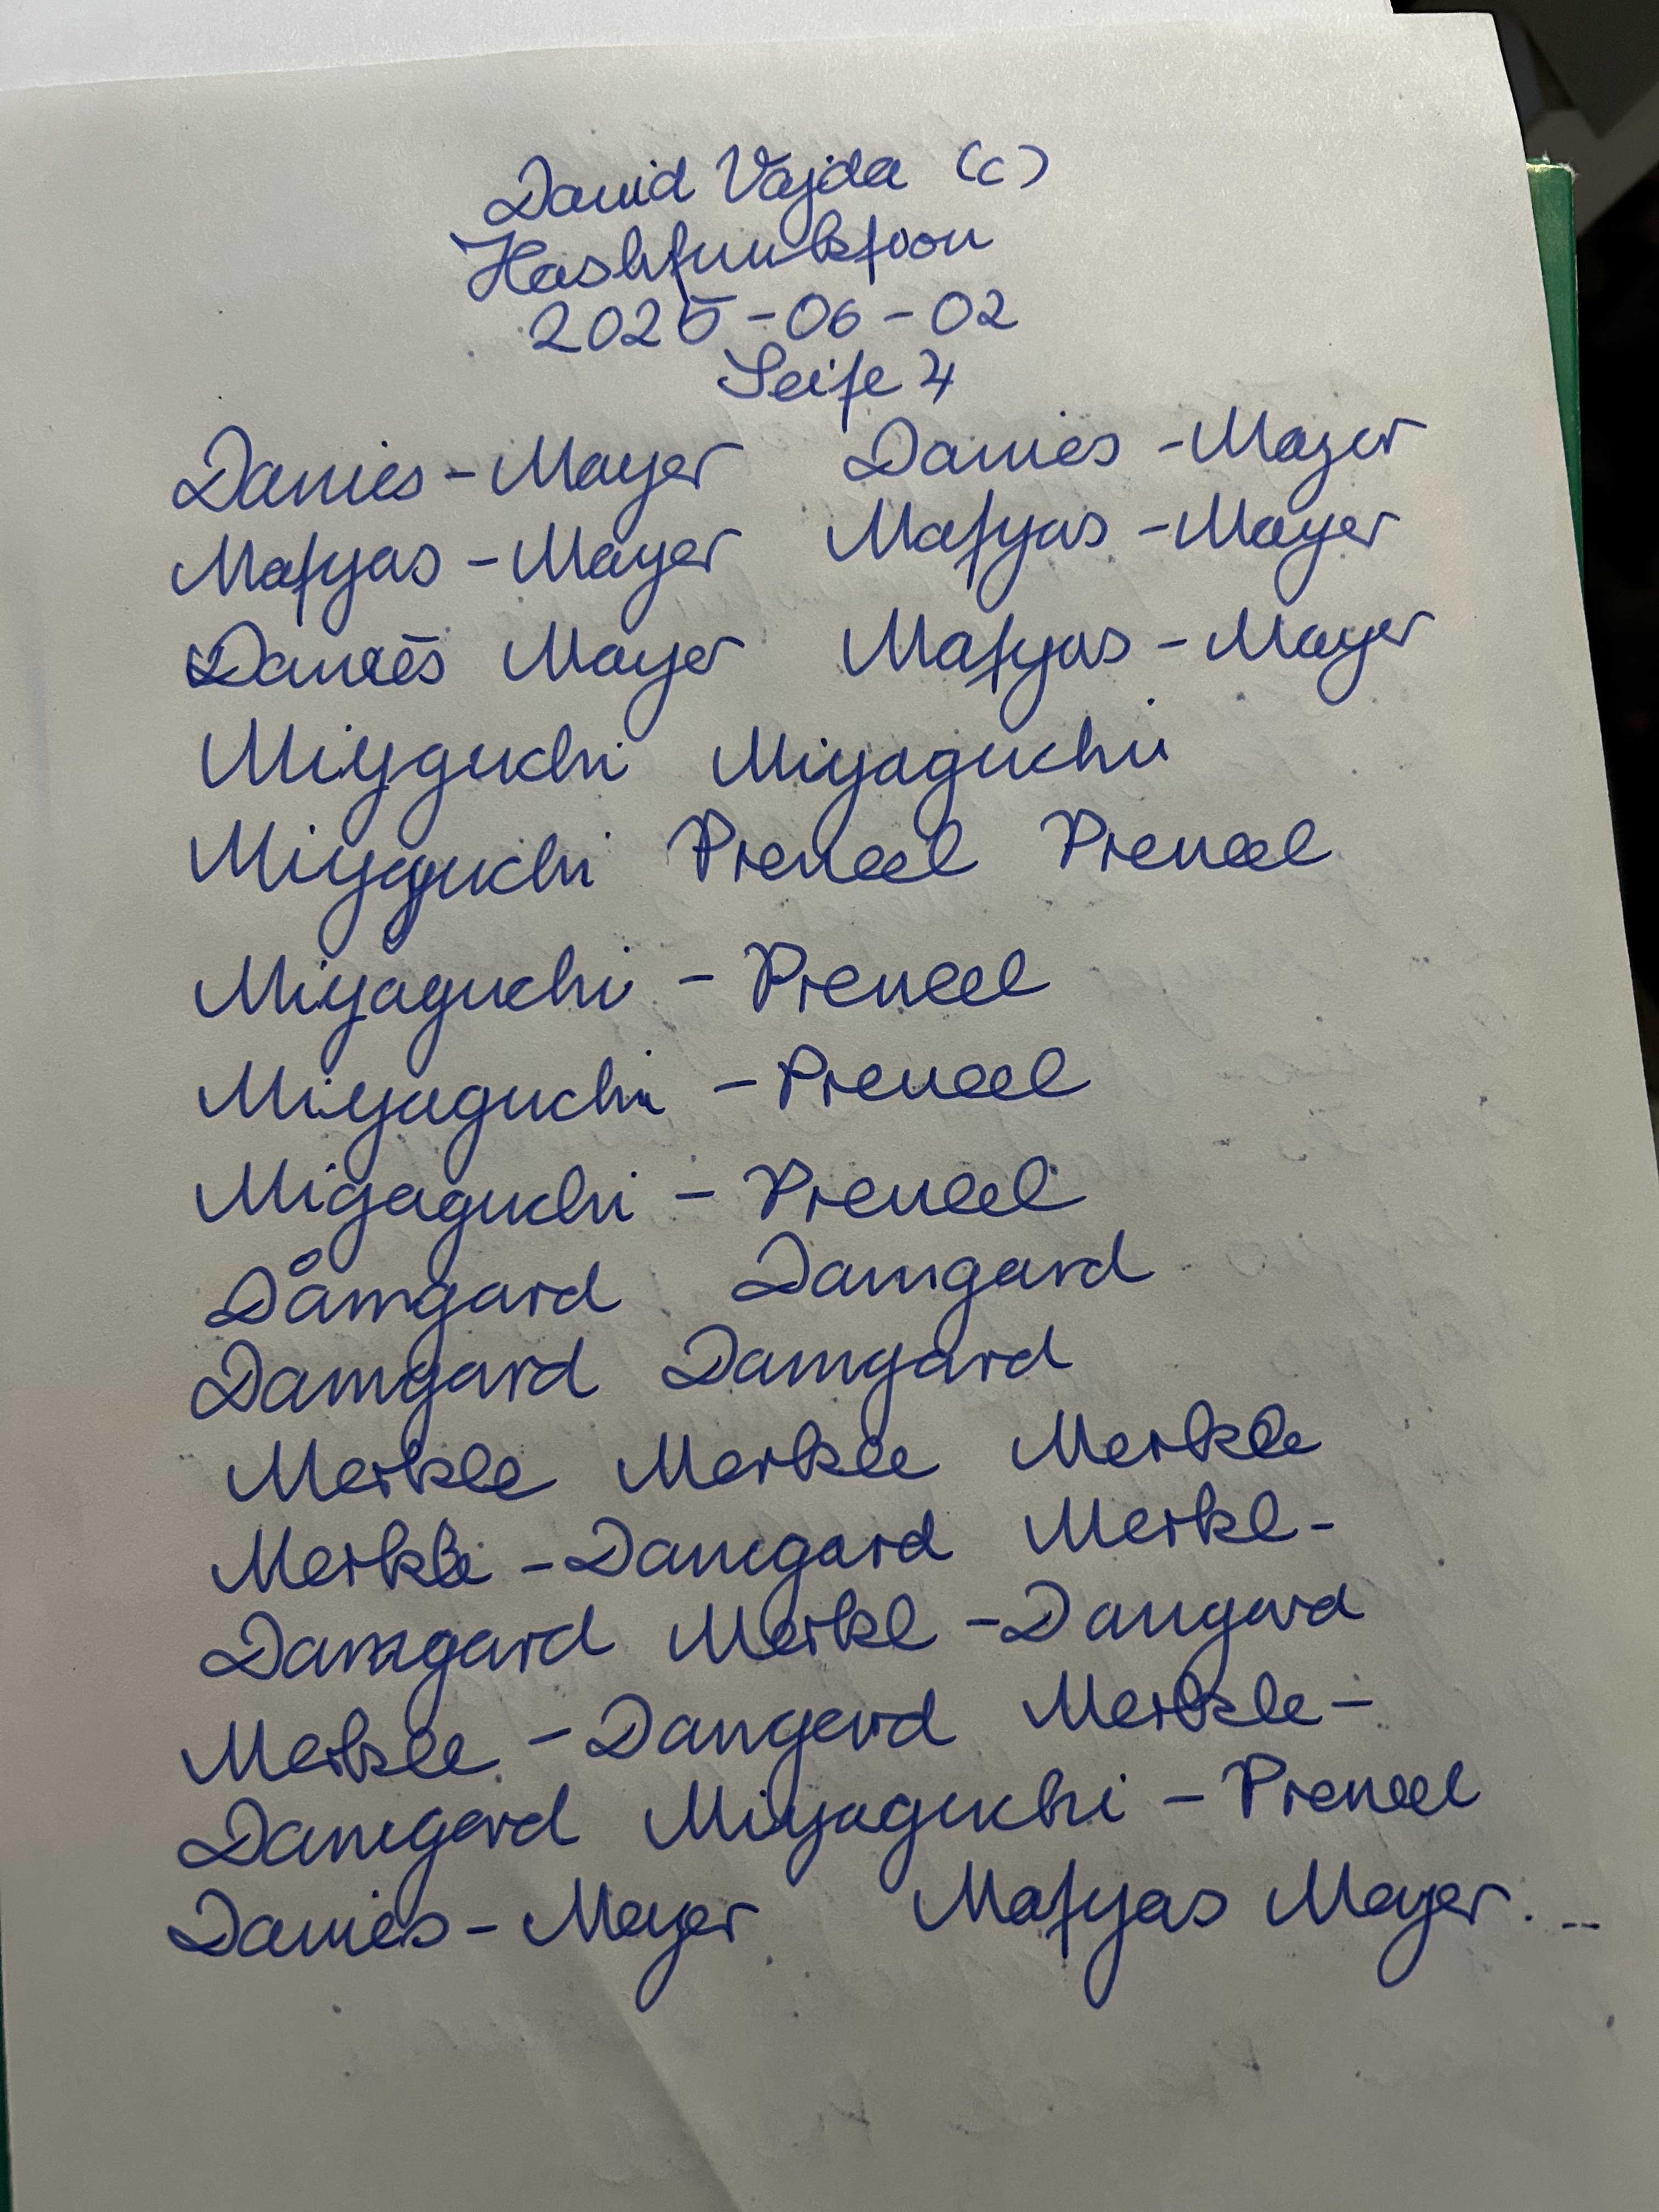 David Vajda (c)
Hashfunktion
2025-06-02
Seite 4
Davies-Mayer Davies-Mayer
Matyas-Mayer Matyas-Mayer
Davies Mayer Matyas-Mayer
Miyguchi Miyaguchi
Miyaguchi Preneel Preneel
Miyaguchi - Preneel
Miyaguchi - Preneel
Miyaguchi - Preneel
Dåmgard Damgard
Damgard Damgard
Merkle Merkle Merkle
Merkle - Damgard Merkl-
Damgard Merkl - Damgard
Merkle - Damgard Merkle-
Damgard Miyaguchi - Preneel
Davies-Mayer Matyas Mayer...